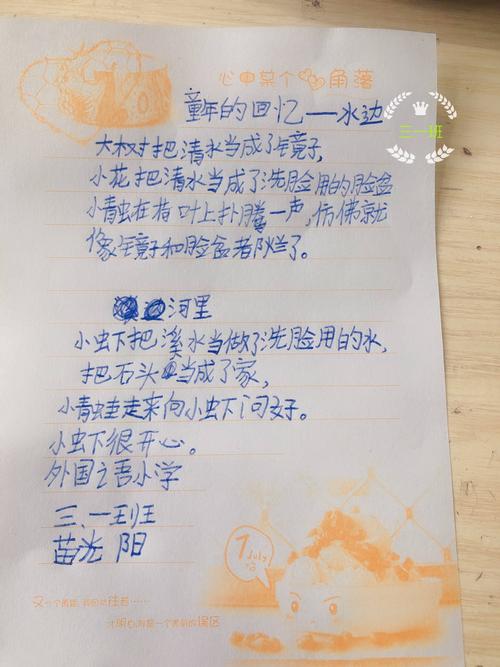 心中某个角落
三一班
童年的回忆——水边
大树把清水当成了镜子,
小花把清水当成了洗脸用的脸盆
小青虫在荷叶上扑腾一声,仿佛就
像镜子和脸盆都烂了。
河里
小虫下把溪水当做了洗脸用的水,
把石头当成了家,
小青蛙走来向小虫下问好。
小虫下很开心。
外国之吾小学
三、一班
苗洸阳
7
July